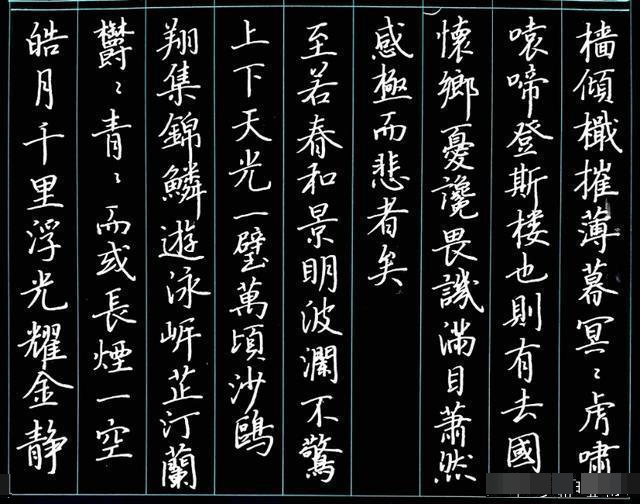 樯傾檝摧薄暮冥〻虎嘯
猿啼登斯楼也則有去國
懷鄉憂讒畏譏滿目蕭然
感極而悲者矣
至若春和景明波瀾不驚
上下天光一壁萬頃沙鷗
翔集錦鱗遊泳岸芷汀蘭
欝〻青〻而或長煙一空
皓月千里浮光耀金静